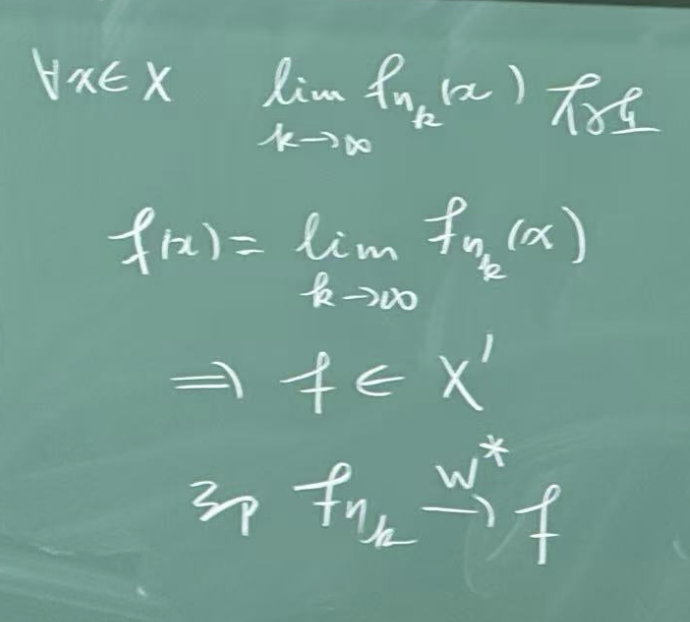 ∀x∈X lim_{k→∞} f_{n_k}(x) 存在
f(x) = lim_{k→∞} f_{n_k}(x)
⇒ f ∈ X'
即 f_{n_k} \xrightarrow{w^*} f